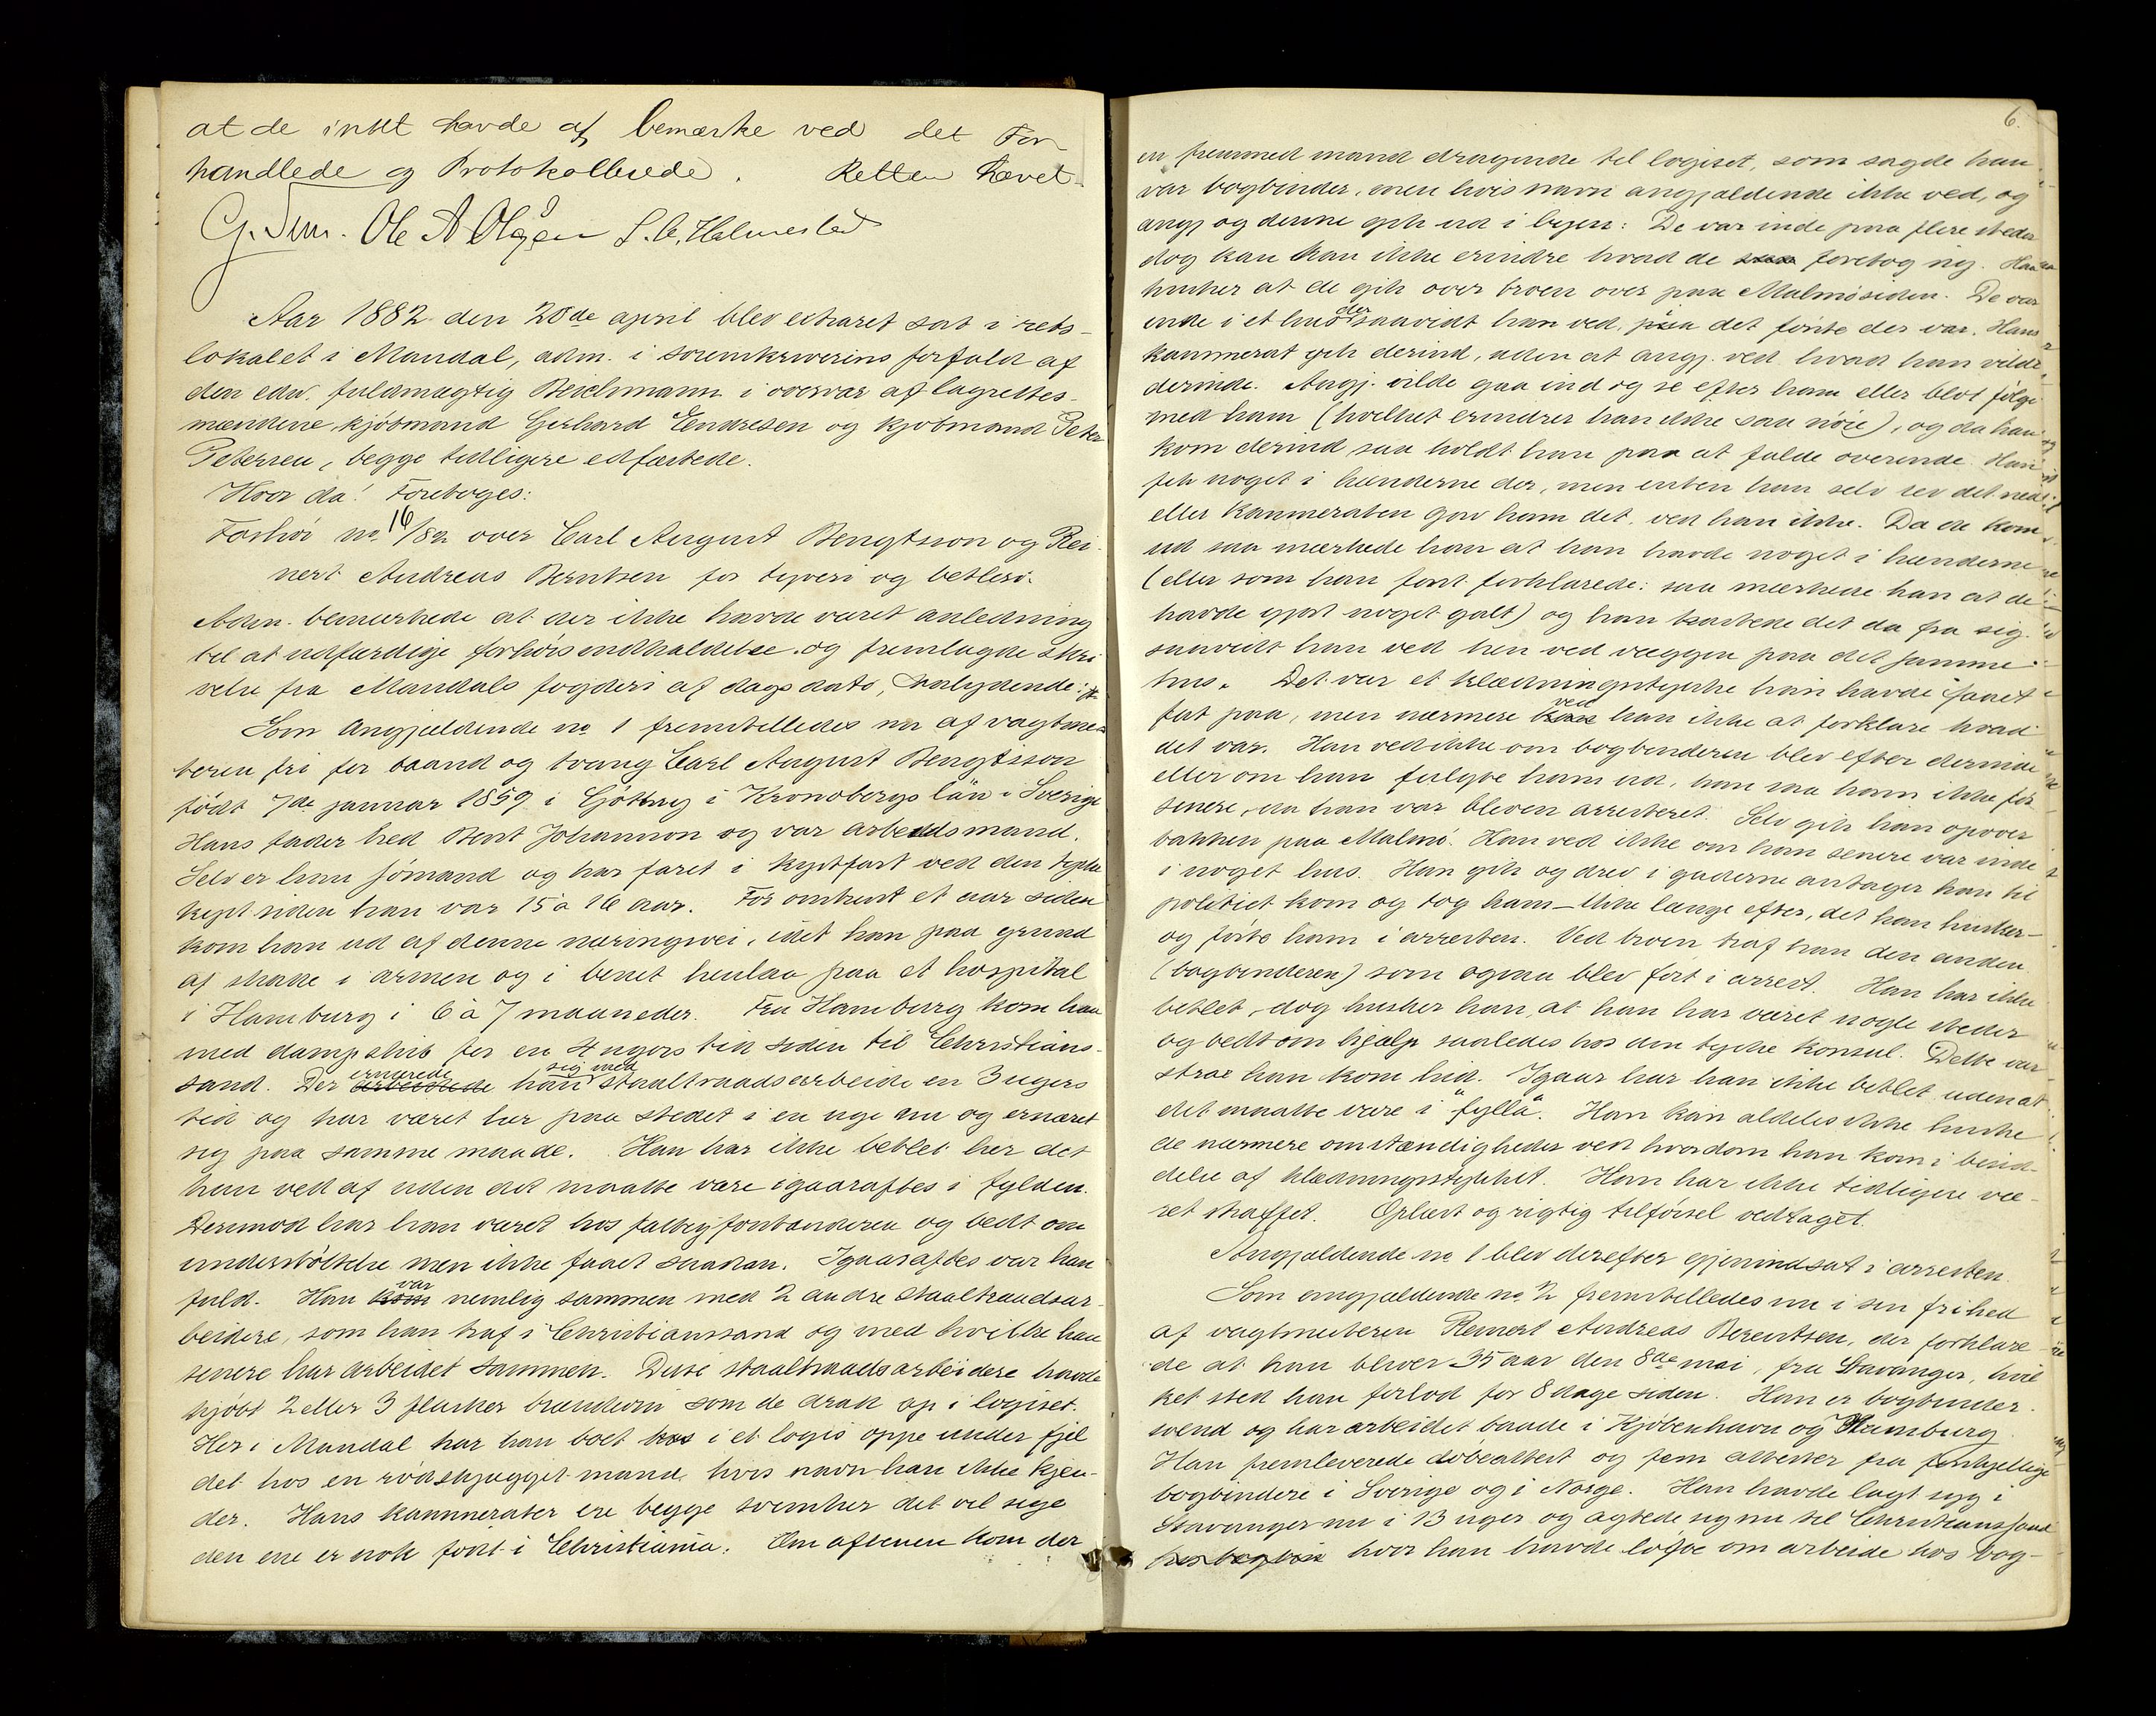 at de intet havde at bemærke ved det For-
handlede og Protokollerede. Retten hævet.
Ole A Olsen S. C. Halmested
Aar 1882 den 20de april blev extraret sat i rets-
lokalet i Mandal, adm. i sorenskriverens forfald af
den edsv. fuldmægtig Beichmann i overvær af lagrettes-
mændene, kjøbmand Gerhard Eendresen og kjøbmand Peter
Petersen, begge tidligere edfæstede.
Hvor da! Foretoges:
Forhør no. 16/82 over Carl August Bengtsson og Rei-
nert Andreas Berntsen for tyveri og betleri.
Adm. bemærkede at der ikke havde været anledning
til at udfærdige forhørsindkaldelse og fremlagde skri-
velse fra Mandals fogderi af dags dato, saalydende:
Som Angjældende no 1 fremstilledes nu af vagtmes-
teren fri for baand og tvang Carl August Bengtsson
født 7de januar 1859 i i Kronobergs län i Sverige
Hans fader hed Bent Johannson og var arbeidsmand.
Selv er han sømand og har faret i kystfart ved den tyske
kyst siden han var 15 à 16 aar. For omtrent et aar siden
kom han ud af denne næringsvei, idet han paa grund
af skade i armen og i benet henlaa paa et hospital
i Hamburg i 6 à 7 maaneder. Fra Hamburg kom han
med dampskib for en 4 ugers tid siden til Christians-
sand. Der arbeidede ernærede han sig med staaltraadsarbeide en 3 ugers
tid og har været her paa stedet i en uge nu og ernæret
sig paa samme maade. Han har ikke betlet her det
han ved af uden det maatte være igaaraftes i fylden.
Derimod har han været hos fattigforstanderen og bedt om
understøttelse men ikke faaet saadan. Igaaraftes var han
fuld. Han kom var nemlig sammen med 2 andre staaltraadsar-
beidere, som han traf i Christianssand og med hvilke han
senere har arbeidet sammen. Disse staaltraadsarbeidere havde
kjøbt 2 eller 3 flasker brændevin som de drak op i logiset.
Her i Mandal har han boet hos i et logis oppe under fjel-
det hos en rødskjægget mand, hvis navn han ikke kjen-
der. Hans kammerater ere begge svensker det vil sige
den ene er nok født i Christiania. Om aftenen kom der
6.
en fremmed mand dragende til logiset, som sagde han
var bogbinder, men hvis navn angjældende ikke ved, og
angj og denne gik ud i byen: De var inde paa flere steder
dog kan han ikke erindre hvad de foretog sig. Han
husker at de gik over broen over paa Malmøsiden. De var
inde i et hus der saavidt han ved, paa det første der var. Hans
kammerat gik derind, uden at angj. ved hvad han vilde
derinde. Angj. vilde gaa ind og se efter ham eller blot følge
med ham (hvilket erindrer han ikke saa nøie), og da han
kom derind saa holdt han paa at falde overende. Han
fik noget i hænderne der, men enten han selv rev det ned
eller kammeraten gav ham det, ved han ikke. Da de kom
ud saa mærkede han at han havde noget i hænderne
(eller som han først forklarede: saa mærkede han at de
havde gjort noget galt) og han kastede det da fra sig
saavidt han ved hen ved væggen paa det samme
hus. Det var et klædningsstykke han havde faaet
fat paa, men nærmere kan ved han ikke at forklare hvad
det var. Han ved ikke om bogbinderen blev efter derinde
eller om han fulgte ham ud, han saa ham ikke før
senere, da han var bleven arresteret. Selv gik han opover
bakken paa Malmø. Han ved ikke om han senere var inde
i noget hus. Han gik og drev i gaderne antager han til
politiet kom og tog ham – ikke længe efter, det han husker –
og førte ham i arresten. Ved broen traf han den anden
(bogbinderen) som ogsaa blev ført i arrest. Han har ikke
betlet, dog husker han, at han har været nogle steder
og bedt om hjælp saaledes hos den tyske konsul. Dette var
strax han kom hid. Igaar har han ikke betlet uden at
det maatte være i "fylla". Han kan aldeles ikke huske
de nærmere omstændigheder ved hvordan han kom i besid-
delse af klædningsstykket. Han har ikke tidligere væ-
ret straffet. Oplæst og rigtig tilførsel vedtaget.
Angjældende no 1 blev derefter gjenindsat i arresten.
Som angjældende no 2 fremstilledes nu i sin frihed
af vagtmesteren Reinert Andreas Berentsen, der forklare-
de at han bliver 35 aar den 8de mai, fra Stavanger, hvil-
ket sted han forlod for 8 dage siden. Han er bogbinder-
svend og har arbeidet baade i Kjøbenhavn og Hamburg.
Han fremleverede døbeattest og fem attester fra forskjellige
bogbindere i Sverige og i Norge. Han havde lagt syg i
Stavanger nu i 13 uger og agtede sig nu til Christianssand
hvor han havde løfte om arbeide hos bog-